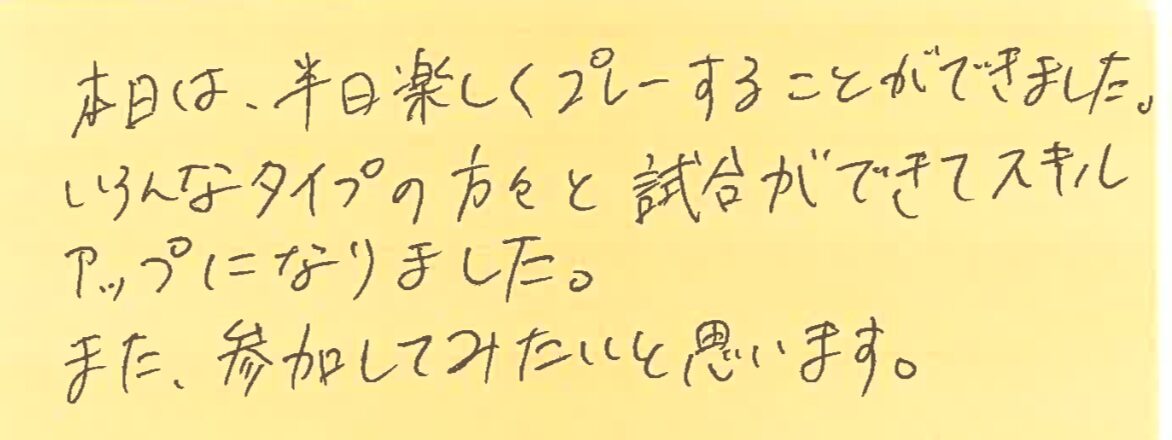 本日は、半日楽しくプレーすることができました。
いろんなタイプの方々と試合ができてスキル
アップになりました。
また、参加してみたいと思います。